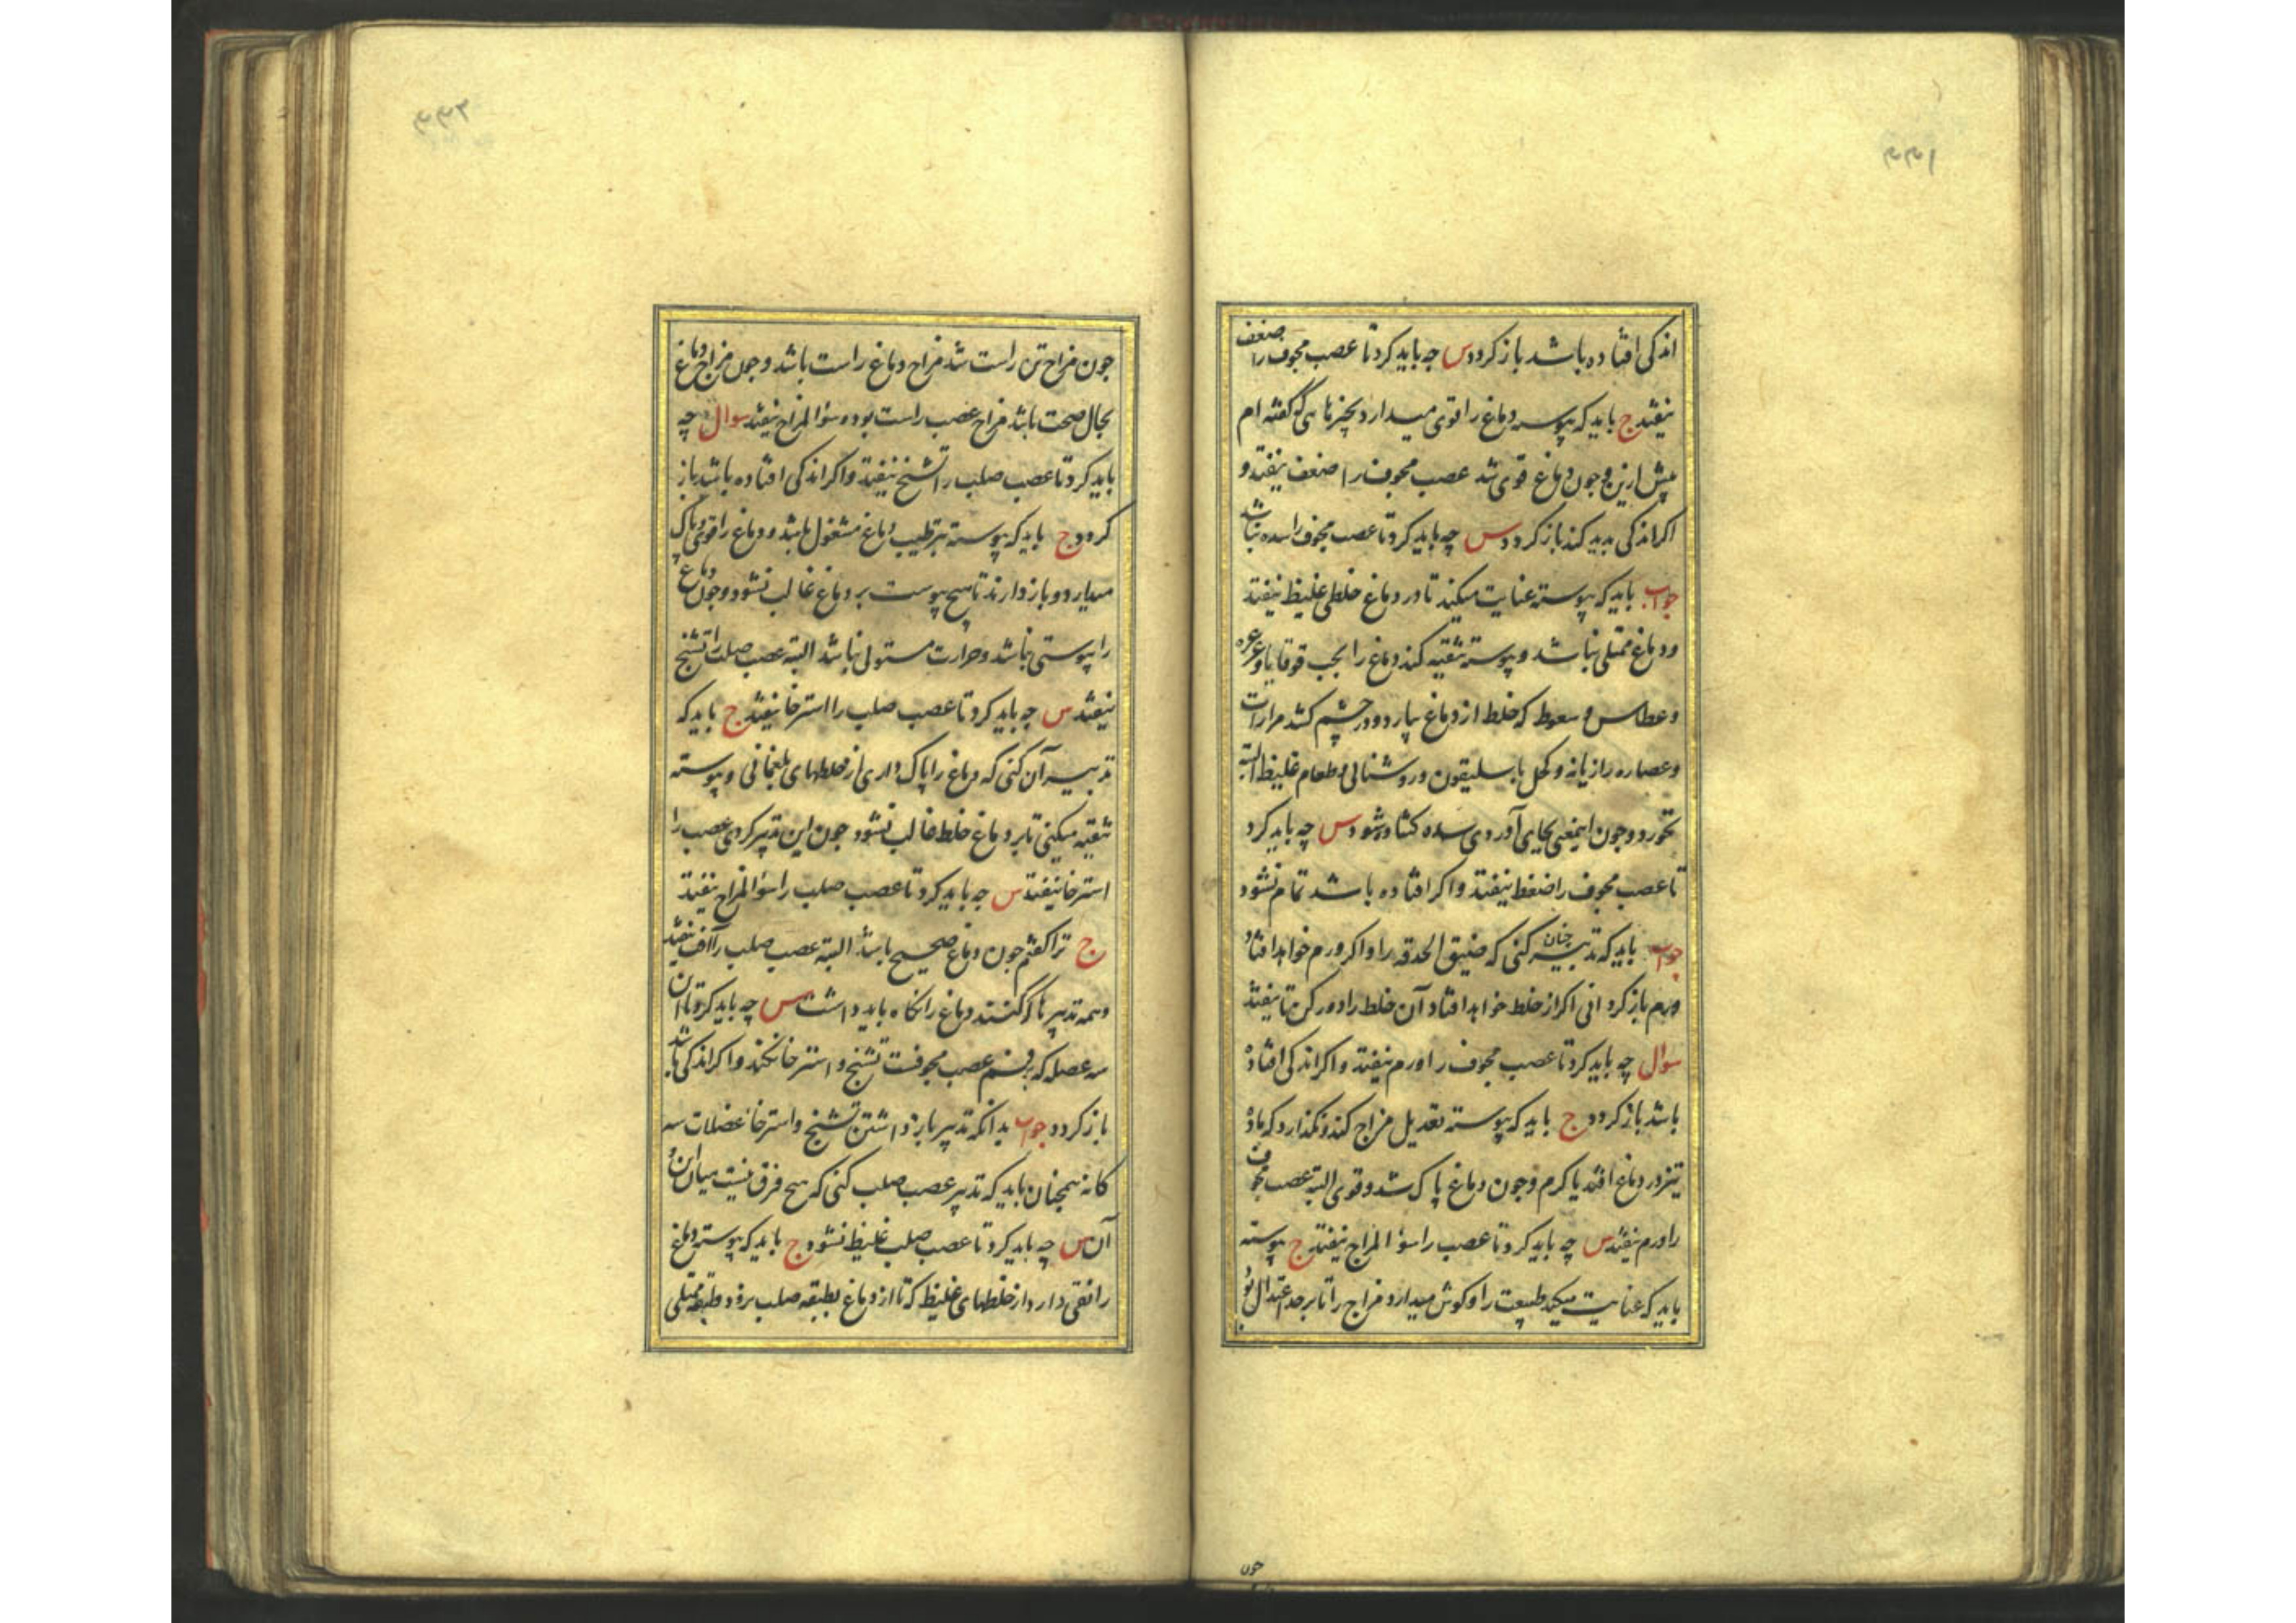 اندکی افتاده باشد باز کردد س چه باید کرد تا عصب مجوف را ضعف
نیفتد ج باید که پیوسته دماغ را قوی میدارد بچیزهایی که گفته ام
پیش ازین و چون دماغ قوی شد عصب مجوف را ضعف نیفتد و
اکر اندکی بدید کند باز کردد س چه باید کرد تا عصب مجوف را سده نباشد
جواب باید که پیوسته عنایت میکند تا در دماغ خلطی غلیظ نیفتد
و دماغ ممتلی نباشد و پیوسته تنقیه کند دماغ را بحب قوقایا و غرغره
و عطاس و سعوط که خلط از دماغ بیارد و در چشم کشد مرارات
و عصاره رازیانه و کحل باسلیقون و روشنائی و طعام غلیظ البته
نخورد و چون اینمعنی بجای آوردی سده کشاده شود س چه باید کرد
تا عصب مجوف را ضغط نیفتد و اکر افتاده باشد تمام نشود
جواب باید که تدبیر چنان کنی که ضیق الحدقه را و اکر ورم خواهد افتاد
ورم باز کردانی اکر از خلط خواهد افتاد آن خلط را دور کن تا نیفتد
سوال چه باید کرد تا عصب مجوف را ورم نیفتد و اکر اندکی افتاده
باشد باز کردد ج باید که پیوسته تعدیل مزاج کند و نکذارد که باد
تیز در دماغ افتد یا کرم و چون دماغ پاک شد و قوی البته عصب مجوف
را ورم نیفتد س چه باید کرد تا عصب را سوء المزاج نیفتد ج پیوسته
باید که عنایت میکند طبیعت را و کوش میدارد مزاج را تا بر حد اعتدال بود
چون
چون مزاج تن راست شد مزاج دماغ راست باشد و چون مزاج دماغ
بحال صحت باشد مزاج عصب راست بود و سوء المزاج نیفتد سوال چه
باید کرد تا عصب صلب را تشنج نیفتد و اکر اندکی افتاده باشد باز
کردد ج باید که پیوسته بترطیب دماغ مشغول باشد و دماغ را قوی و پاک
میدارد و باز دارند تا هیچ یبوست بر دماغ غالب نشود و چون دماغ
را یبوستی نباشد و حرارت مستولی نباشد البته عصب صلب را تشنج
نیفتد س چه باید کرد تا عصب صلب را استرخا نیفتد ج باید که
تدبیر آن کنی که دماغ را پاک داری از خلطهای بلغمانی و پیوسته
تنقیه میکنی تا بر دماغ خلط غالب نشود چون این تدبیر کردی عصب را
استرخا نیفتد س چه باید کرد تا عصب صلب را سوء المزاج نیفتد
ج ترا کفتم چون دماغ صحیح باشد البته عصب صلب را آفت نیفتد
و همه تدبیرها که کنند دماغ را نکاه باید داشت س چه باید کرد تا آن
سه عضله که بر فم عصب مجوفست تشنج و استرخا نکند و اکر اندکی باشد
باز کردد جواب بدانکه تدبیر باز داشتن تشنج و استرخا عضلات سه
کانه همچنان باید که تدبیر عصب صلب کنی که هیچ فرق نیست میان این و
آن س چه باید کرد تا عصب صلب غلیظ نشود ج باید که پیوسته دماغ
را نقی دارد از خلطهای غلیظ که تا از دماغ بطبقه صلب نرود و طبقه ممتلی